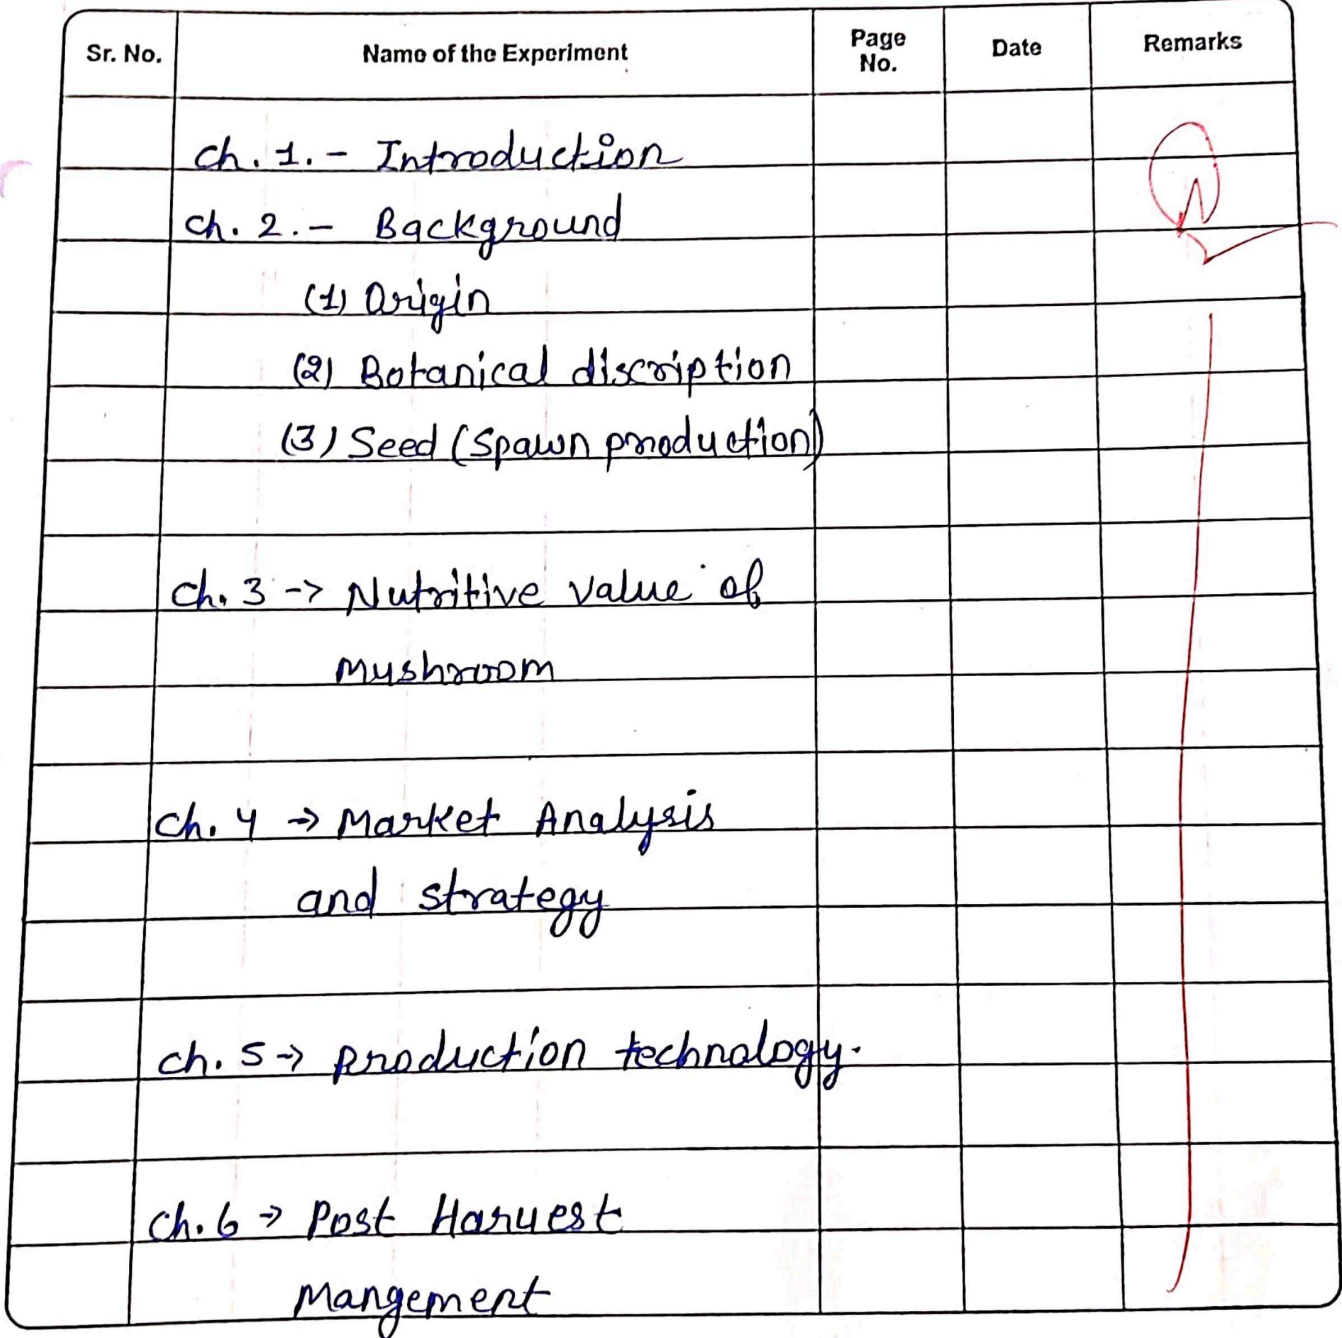 Sr. No. Name of the Experiment Page No. Date Remarks
Ch. 1. - Introduction
Ch. 2. - Background
(1) Origin
(2) Botanical discription
(3) Seed (Spawn production)
Ch. 3 -> Nutritive value of
Mushroom
Ch. 4 -> Market Analysis
and strategy
Ch. 5 -> production technology.
Ch. 6 -> Post Harvest
Mangement